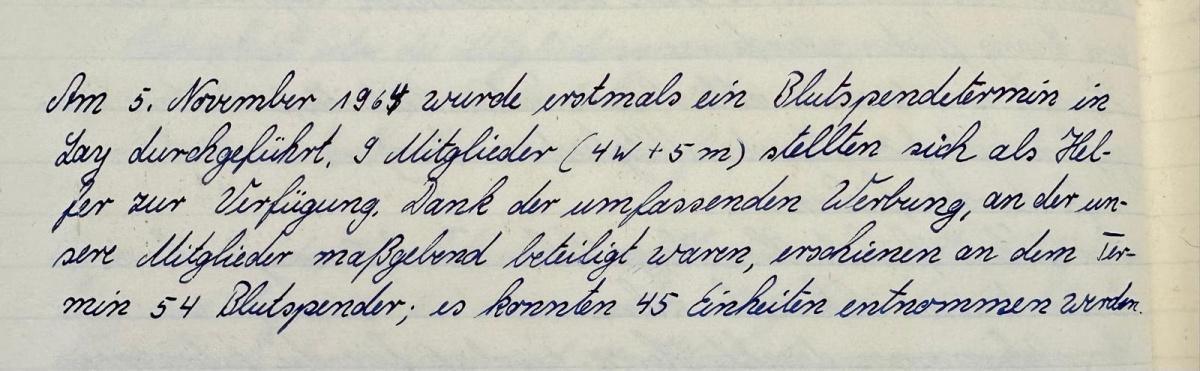 Am 5. November 1964 wurde erstmals ein Blutspendetermin in
Lay durchgeführt. 9 Mitglieder (4w + 5m) stellten sich als Hel-
fer zur Verfügung. Dank der umfassenden Werbung, an der un-
sere Mitglieder maßgebend beteiligt waren, erschienen an dem Ter-
min 54 Blutspender; es konnten 45 Einheiten entnommen werden.